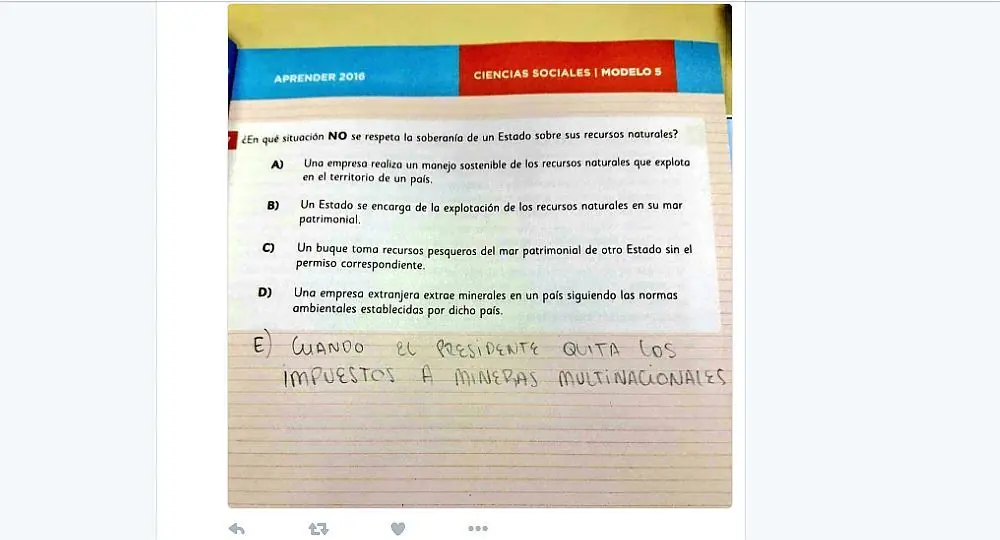 APRENDER 2016
CIENCIAS SOCIALES | MODELO 5
¿En qué situación NO se respeta la soberanía de un Estado sobre sus recursos naturales?
A) Una empresa realiza un manejo sostenible de los recursos naturales que explota
en el territorio de un país.
B) Un Estado se encarga de la explotación de los recursos naturales en su mar
patrimonial.
C) Un buque toma recursos pesqueros del mar patrimonial de otro Estado sin el
permiso correspondiente.
D) Una empresa extranjera extrae minerales en un país siguiendo las normas
ambientales establecidas por dicho país.
E) CUANDO EL PRESIDENTE QUITA LOS
IMPUESTOS A MINERAS MULTINACIONALES